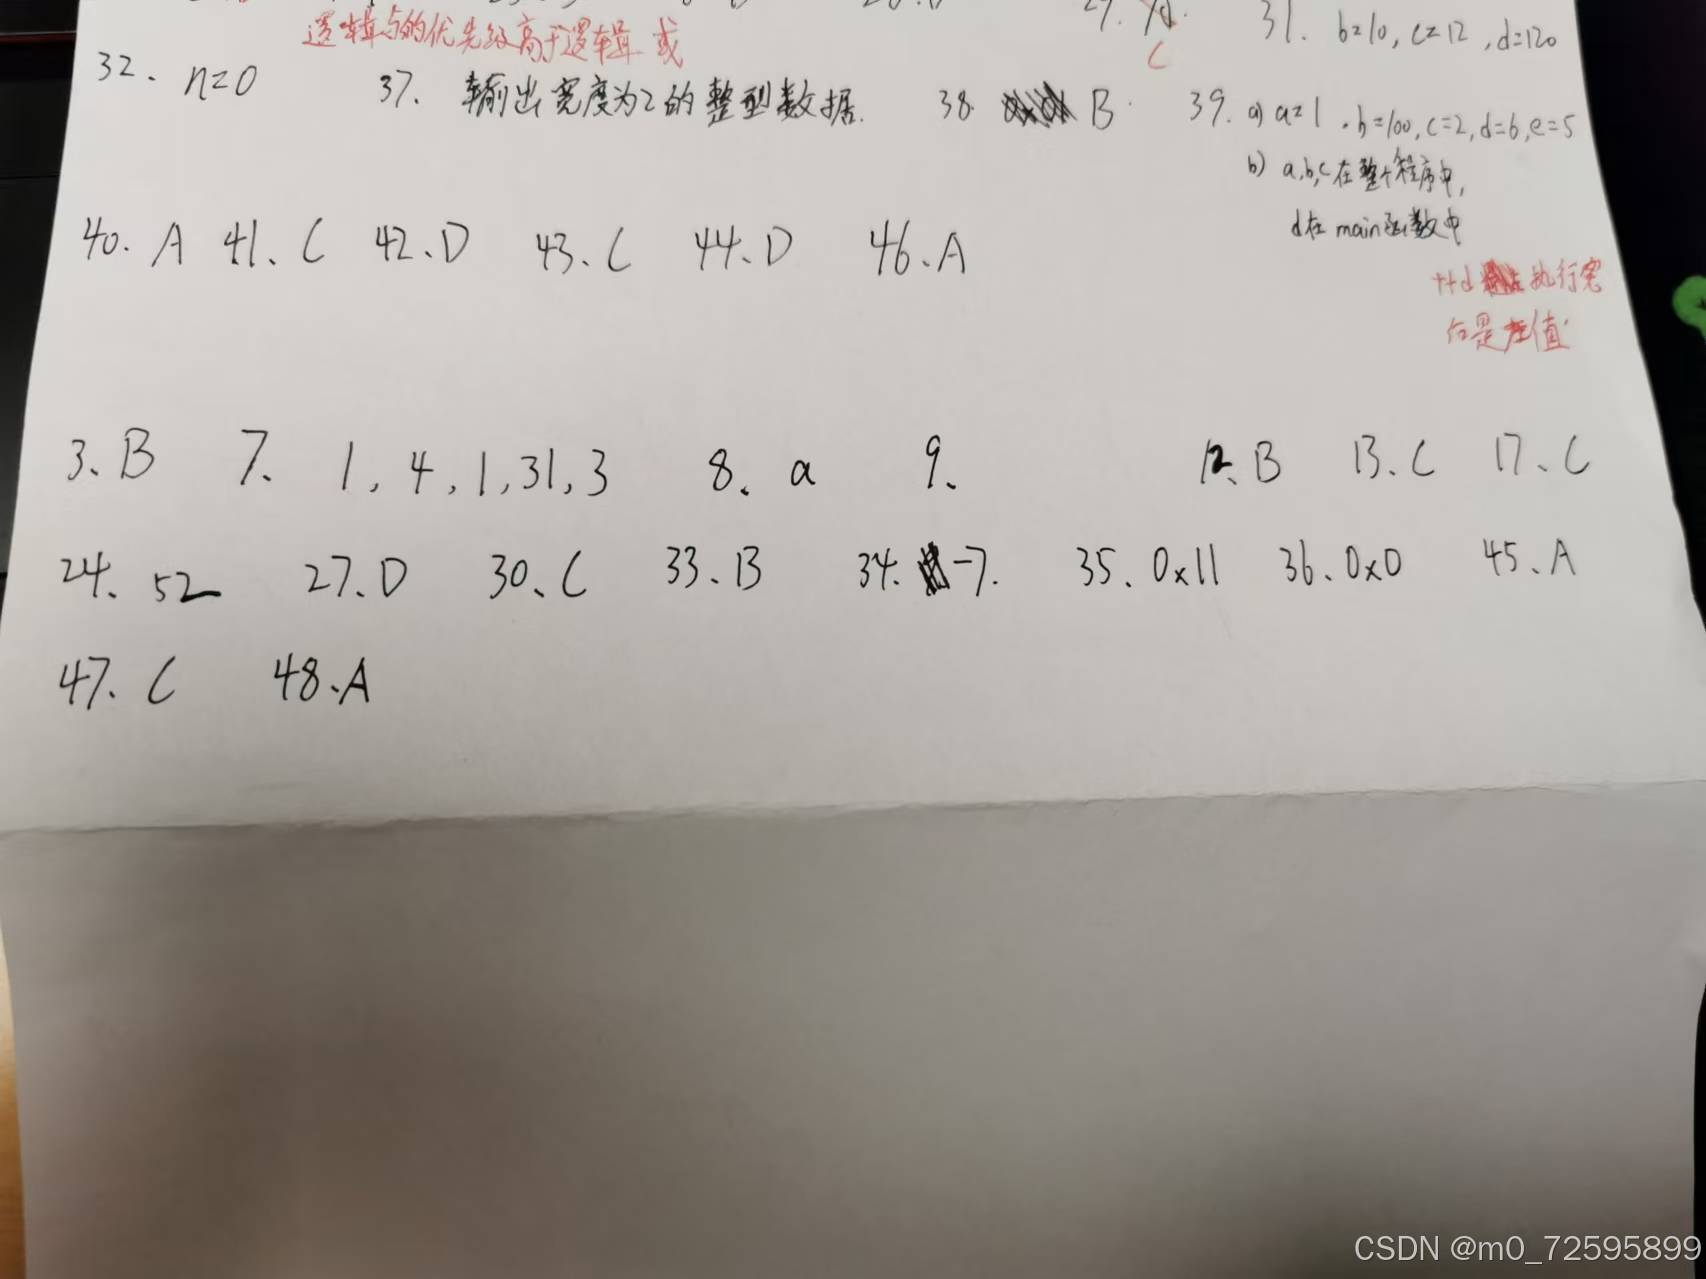 逻辑与的优先级高于逻辑或
29. C
31. b=10, c=12, d=120
32. n=0 37. 输出宽度为2的整型数据. 38. B 39. a) a=1, b=100, c=2, d=6, e=5
b) a,b,c在整个程序中,
d在main函数中
++d 执行完
后是左值
40. A 41. C 42. D 43. C 44. D 46. A
3、B 7、1, 4, 1, 31, 3 8、a 9、 12、B 13、C 17、C
24、52 27、D 30、C 33、B 34、-7. 35、0x11 36、0x0 45、A
47、C 48、A
CSDN @m0_72595899